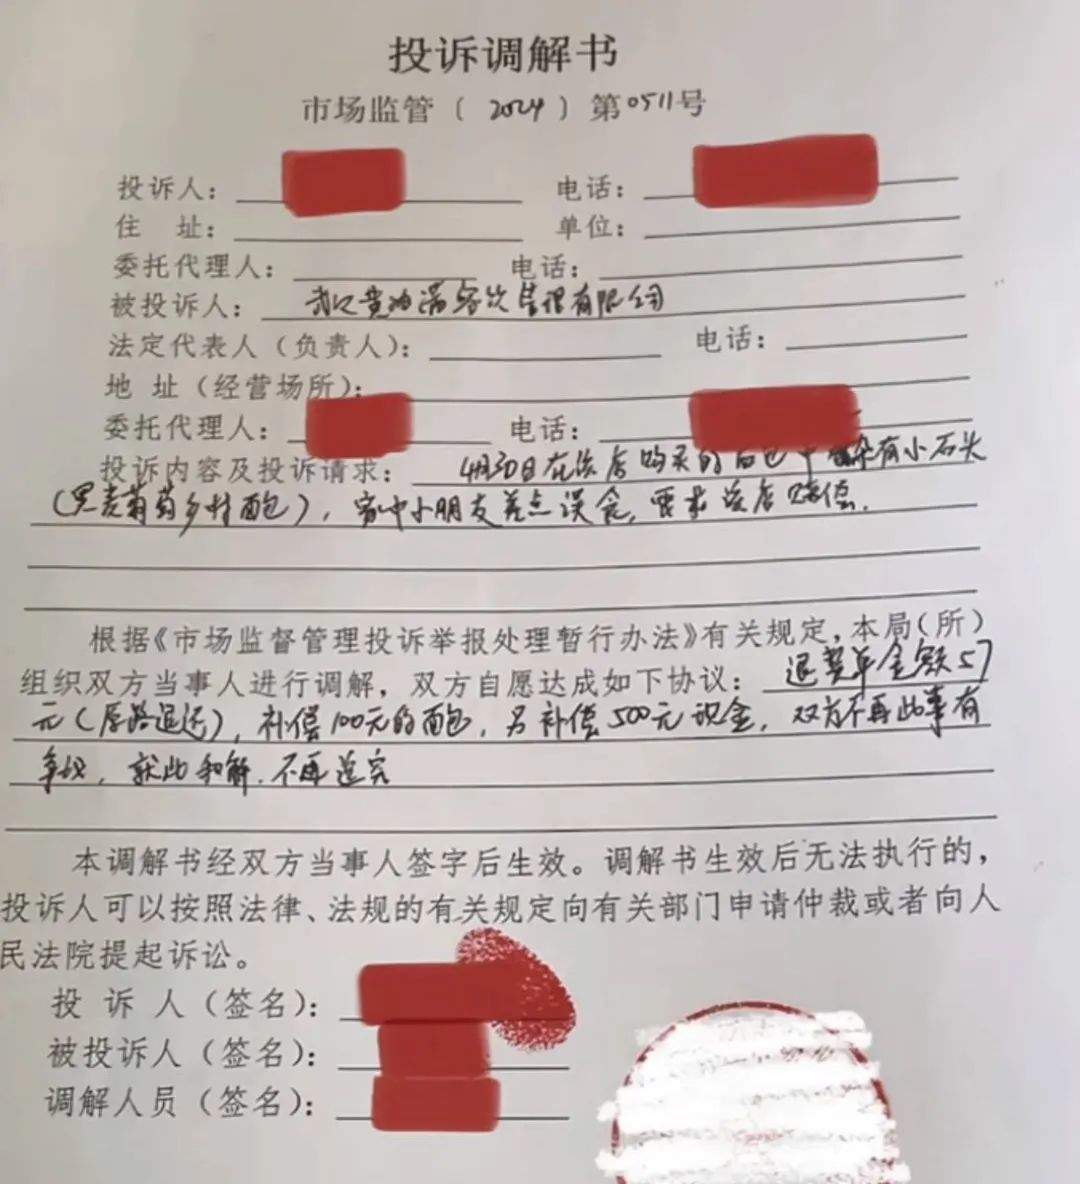 投诉调解书
市场监管〔2024〕第0511号
投诉人： 电话：
住 址： 单位：
委托代理人： 电话：
被投诉人：武汉黄油满餐饮管理有限公司
法定代表人（负责人）： 电话：
地 址（经营场所）：
委托代理人： 电话：
投诉内容及投诉请求：4月30日在该店购买的面包中有小石头
（黑麦葡萄乡村面包），家中小朋友差点误食，要求该店赔偿.
根据《市场监督管理投诉举报处理暂行办法》有关规定，本局（所）
组织双方当事人进行调解，双方自愿达成如下协议：退单金额57
元（原路退还），补偿100元的面包，另补偿500元现金，双方不再此事有
争议，就此和解.不再追究
本调解书经双方当事人签字后生效。调解书生效后无法执行的，
投诉人可以按照法律、法规的有关规定向有关部门申请仲裁或者向人
民法院提起诉讼。
投 诉 人（签名）：
被投诉人（签名）：
调解人员（签名）：